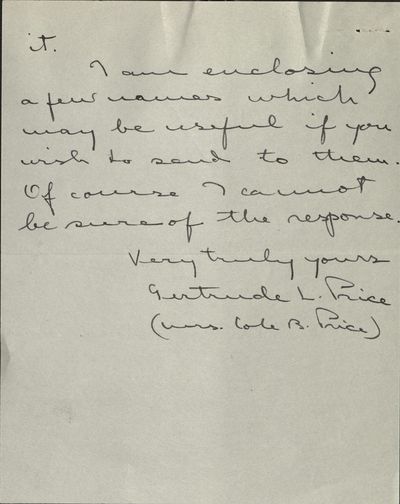 it.
I am enclosing
a few names which
may be useful if you
wish to send to them.
Of course I cannot
be sure of the response.
Very truly yours
Gertrude L. Price
(Mrs. Cole B. Price)